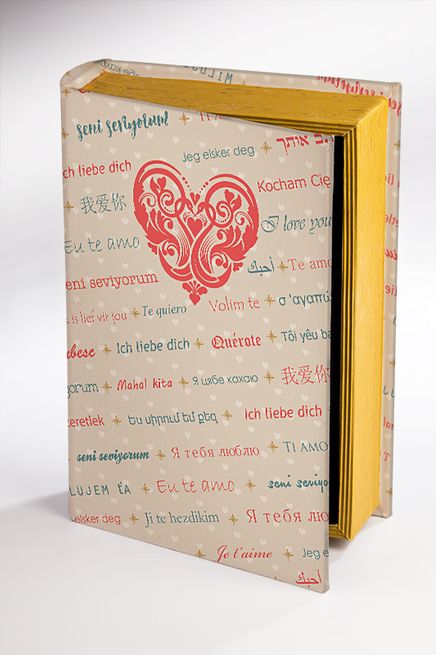 seni seviyorum
Jeg elsker deg
ich liebe dich
Kocham Cię
我爱你
I love you
Eu te amo
أحبك
Te amo
seni seviyorum
Te quiero
Volim te
Ich liebe dich
Quérote
Mahal kita
Я цябе кахаю
我爱你
Ես սիրում եմ քեզ
Ich liebe dich
seni seviyorum
Я тебя люблю
TI AMO
ĽUJEM ŤA
Eu te amo
seni seviyo
elsker deg
Ji te hezdikim
Я тебя лю
Je t'aime
Jeg e
أحبك